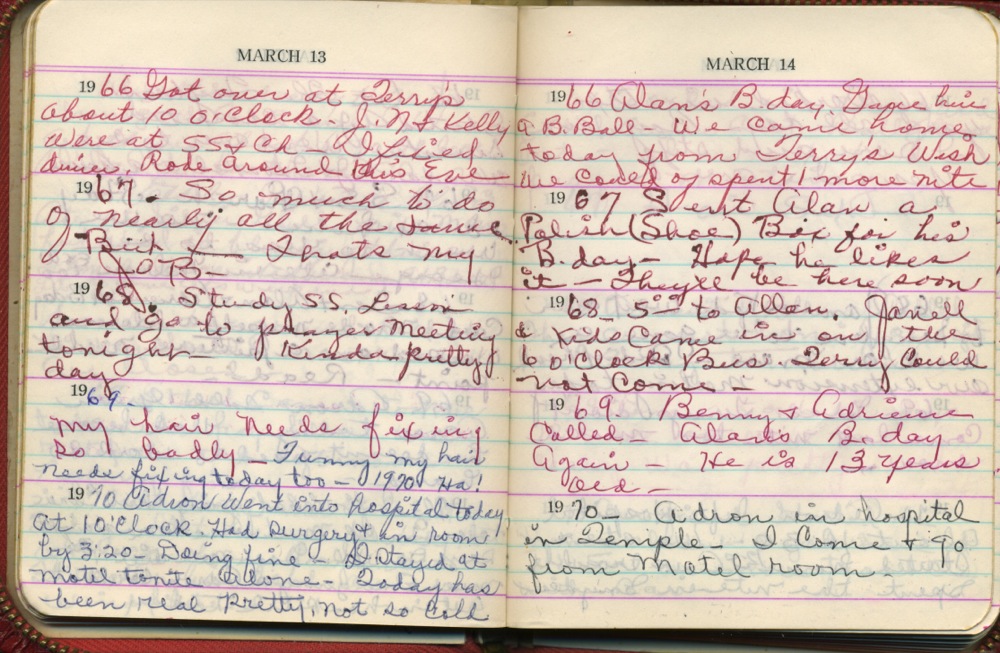 MARCH 13
1966 Got over at Terry's
about 10 O'Clock - J. N & Kelly
were at SS & Ch - I Fried
dinner. Rode around this Eve
1967. So much to do
of nearly all the same
But - Thats my
JOB -
1968. Study S.S. Lesson
and go to prayer Meeting
tonight - Kinda pretty
day
1969.
My hair Needs fixing
so badly - Funny my hair
needs fixing today too - 1970 Ha!
1970 Adron Went into hospital today
at 10 O'Clock Had surgery & in room
by 3:20. Doing fine - I stayed at
Motel tonite Alone - Today has
been real Pretty, Not so Cold
MARCH 14
1966 Alan's B.day Gave him
a B. Ball - We came home
today from Terry's Wish
we could of spent 1 more nite
1967 Sent Alan a
Polish (Shoe) Box for his
B.day - Hope he likes
it - They'll be here soon
1968 - 5 00 to Allan. Janell
& Kids Came in on the
6 O'Clock Bus. Terry Could
not Come -
1969. Benny & Adriene
Called - Alan's B.day
Again - He is 13 years
old -
1970 - Adron in hospital
in Temple - I Come & go
from Motel room -